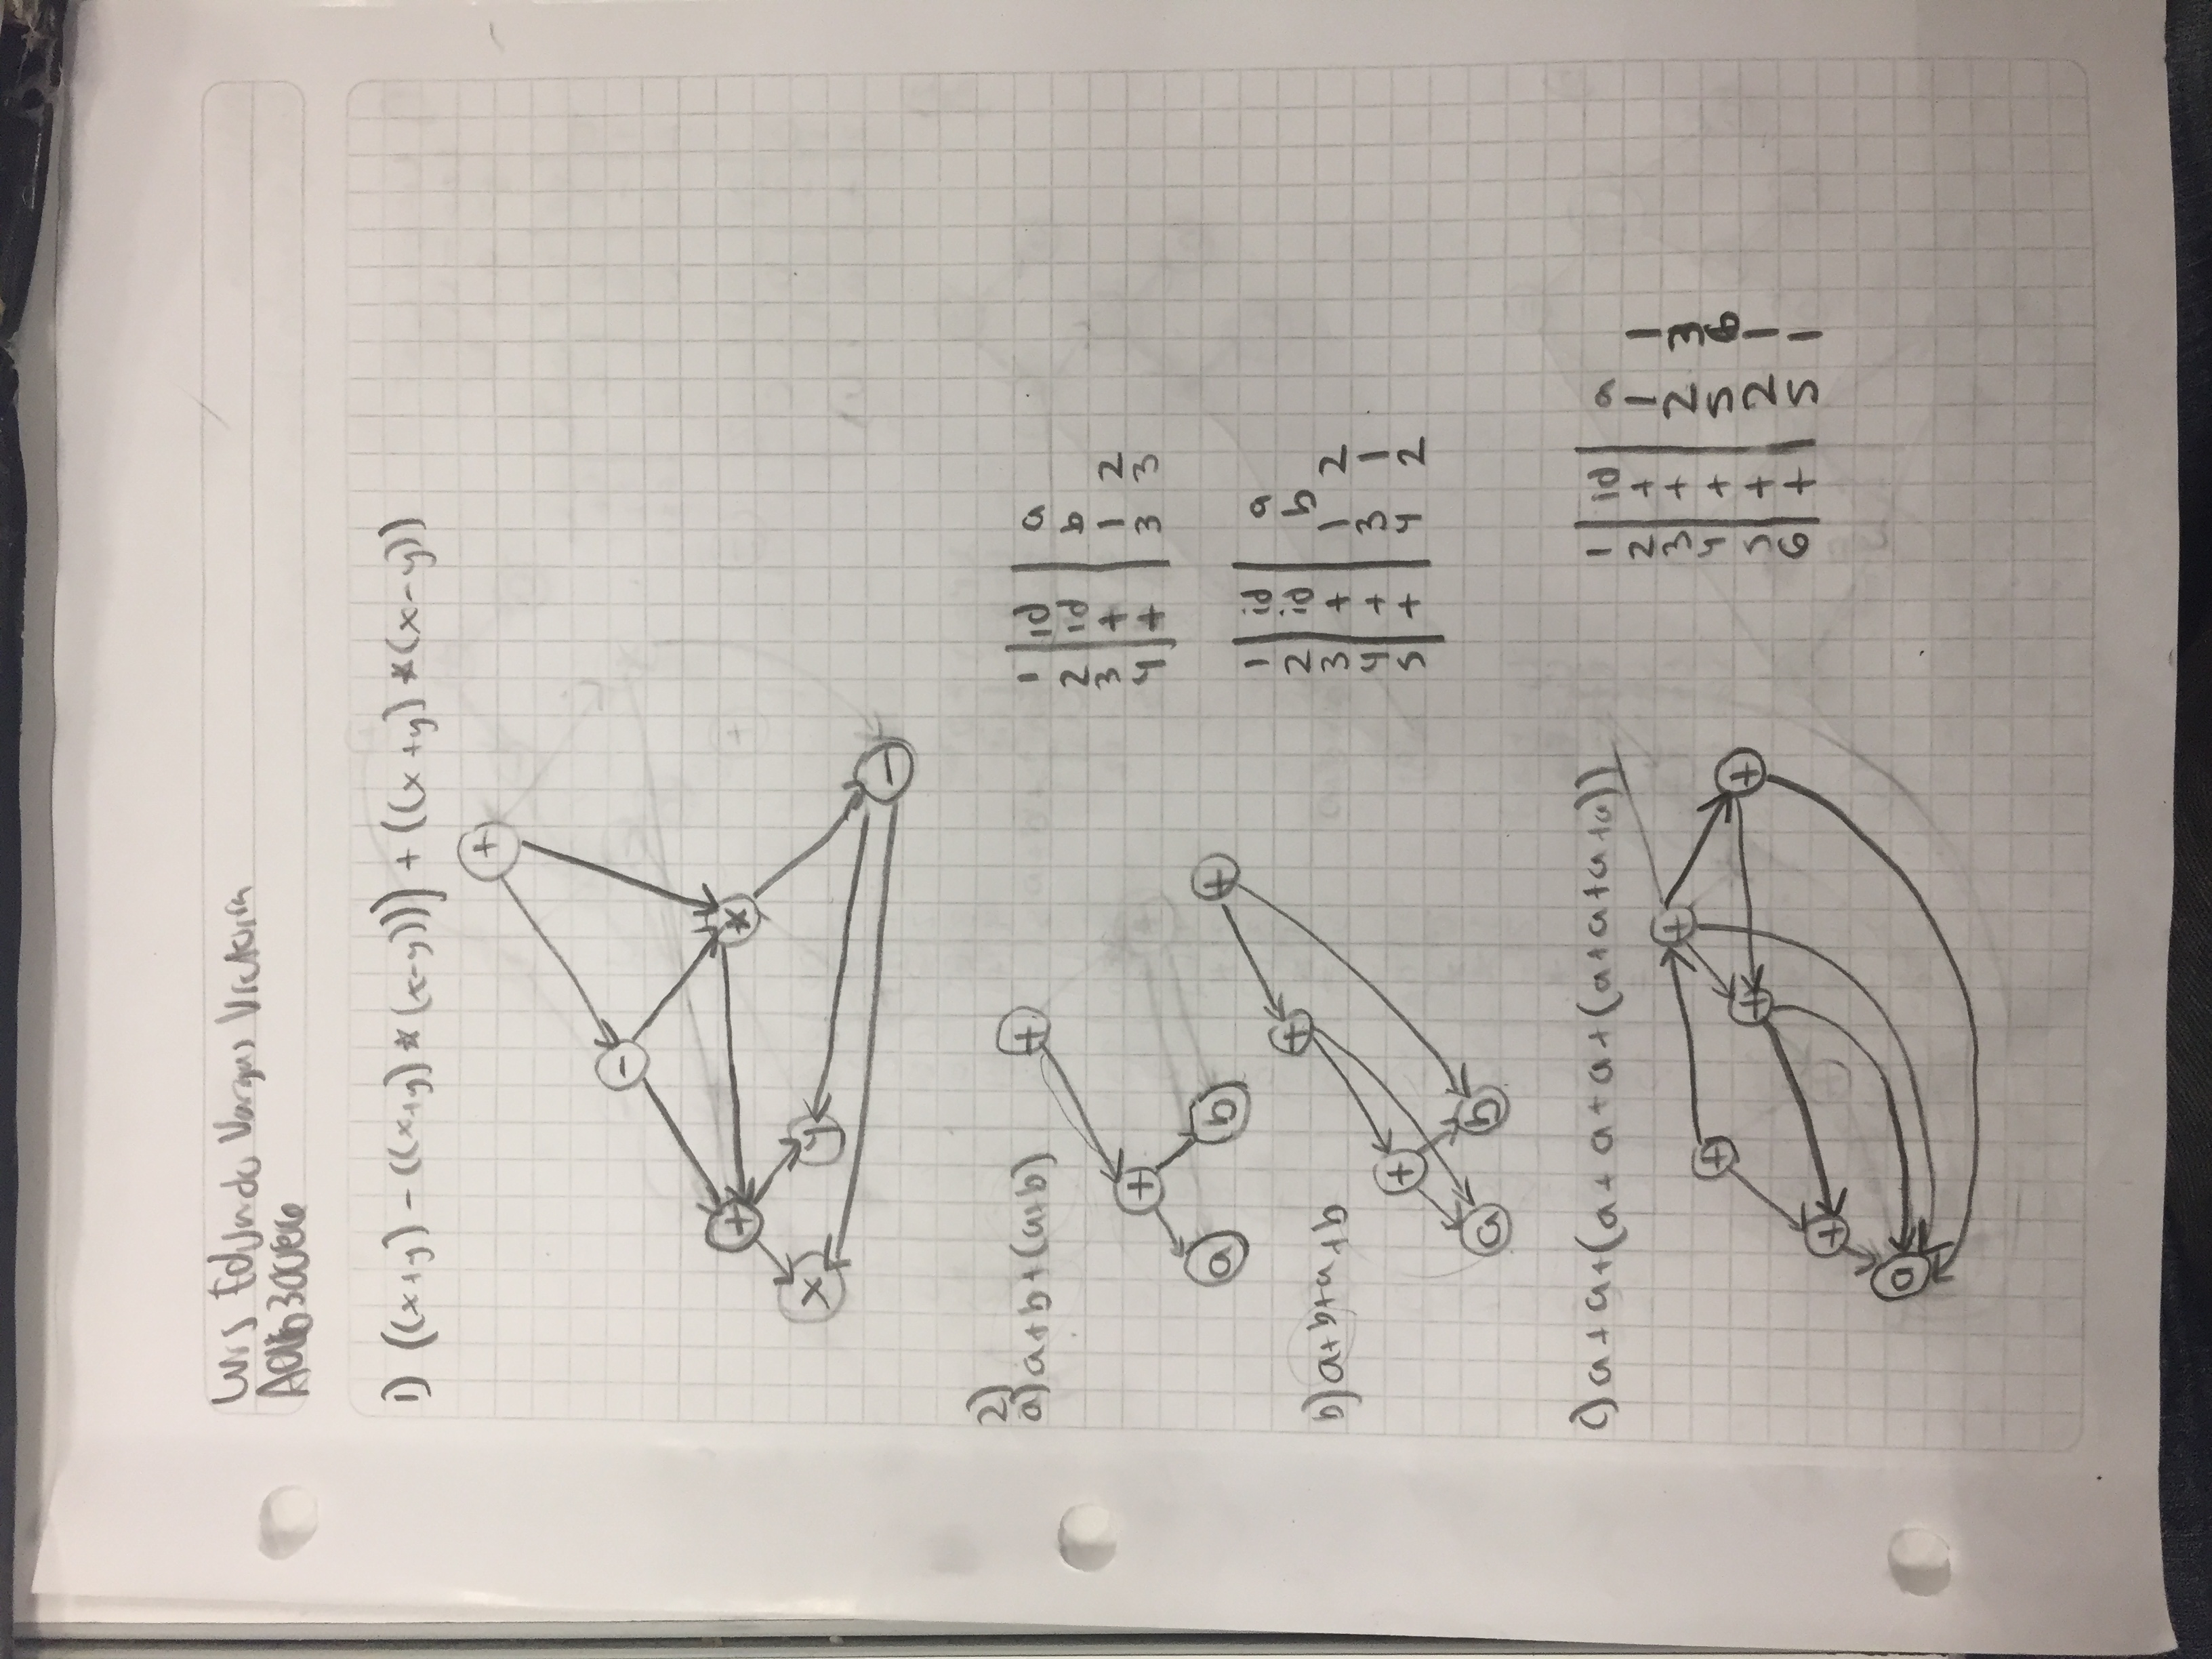 Luis Eduardo Vargas Victoria
1) ((x+y) - ((x+y) * (x-y))) + ((x+y) * (x-y))
+
-
+ *
x y
-
2)
a) a+b+(a+b)
+
+
a b
1 | id | a
2 | id | b
3 | + | 1 2
4 | + | 3 3
b) a+b+a+b
+
+
+
a b
1 | id | a
2 | id | b
3 | + | 1 2
4 | + | 3 1
5 | + | 4 2
c) a+a+(a+a+a+(a+a+a+a))
+
+
+ +
+
a
1 | id | a
2 | + | 1 1
3 | + | 2 3
4 | + | 5 6
5 | + | 2 1
6 | + | 5 1